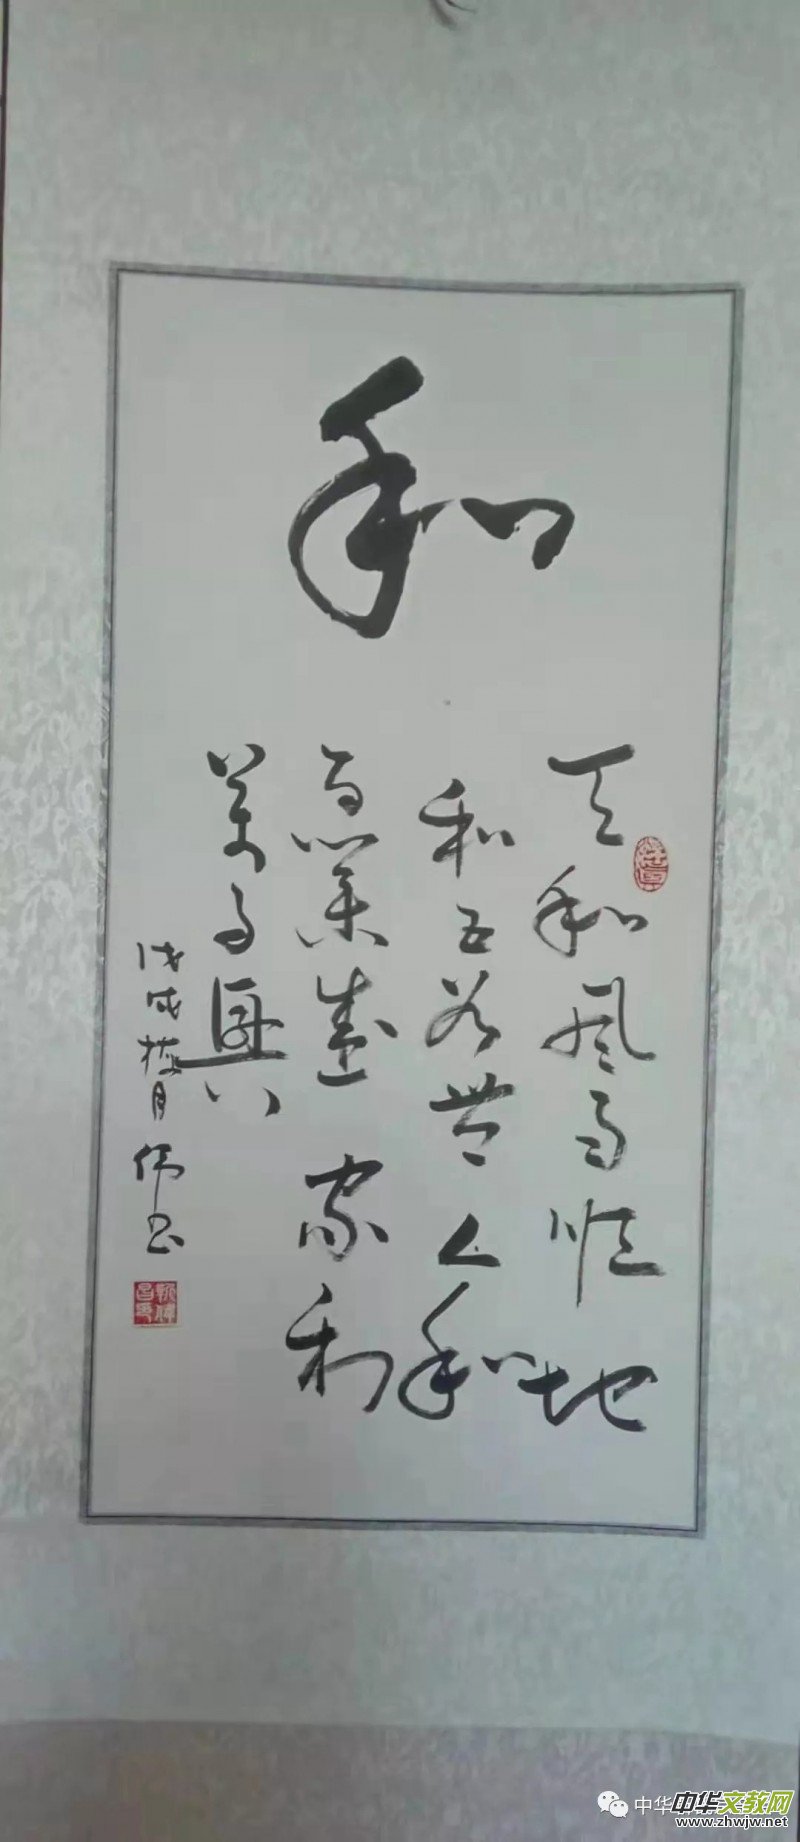 和
天和风雨顺地
和五谷丰人和
百业盛家和
万事兴
戊戌梅月伟书
中华
中华文教网
www.zhwjw.net